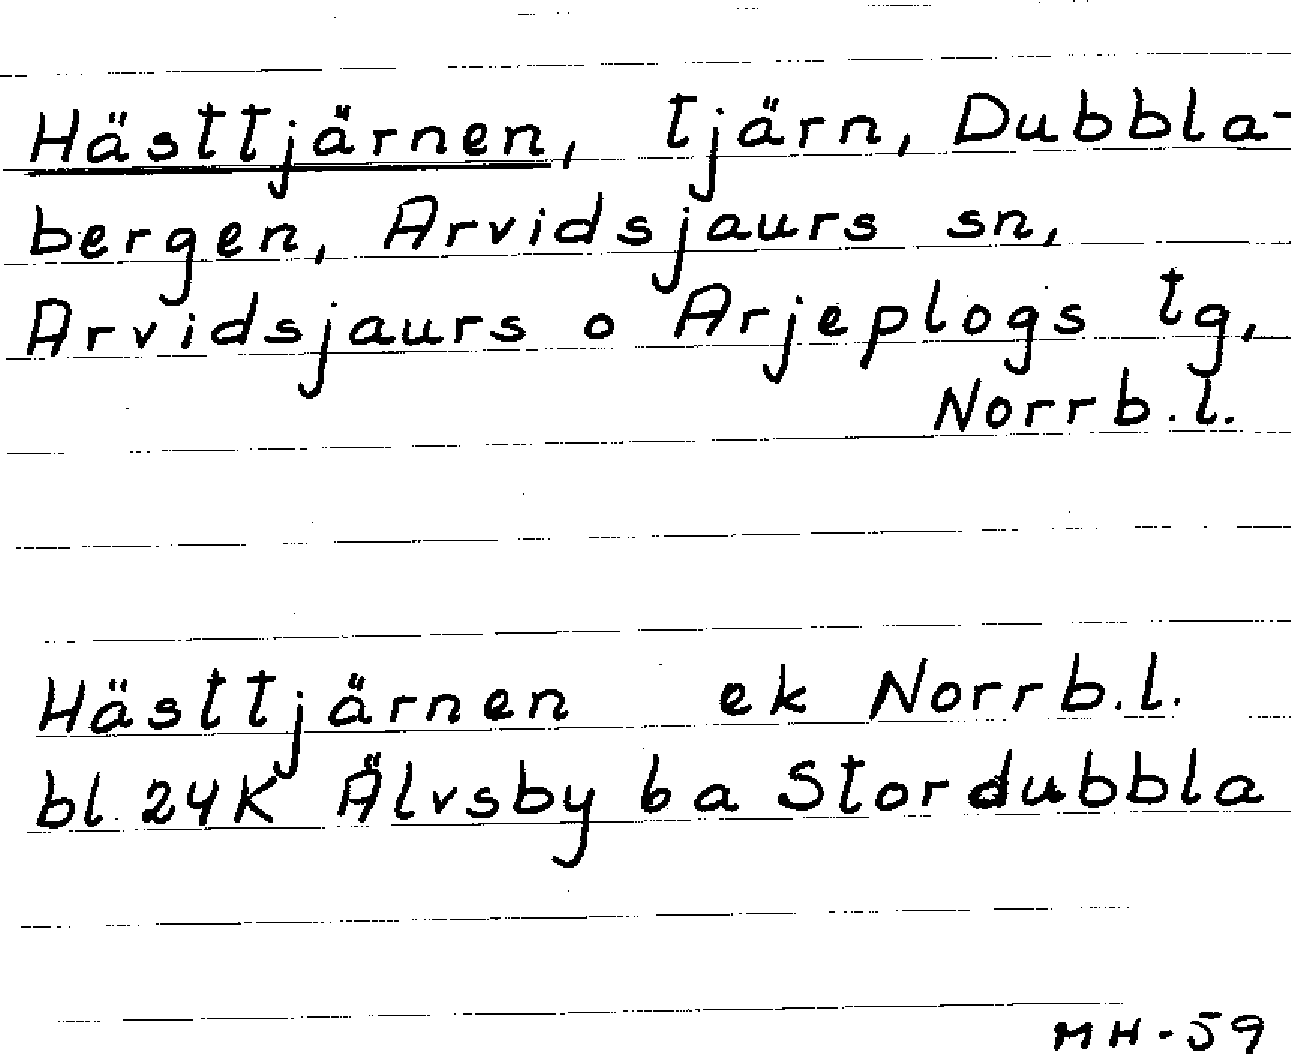 Hästtjärnen, tjärn, Dubbla-
bergen, Arvidsjaurs sn,
Arvidsjaurs o Arjeplogs tg,
Norrb.l.
Hästtjärnen ek Norrb.l.
bl. 24K Älvsby 6a Stordubbla
MH-59